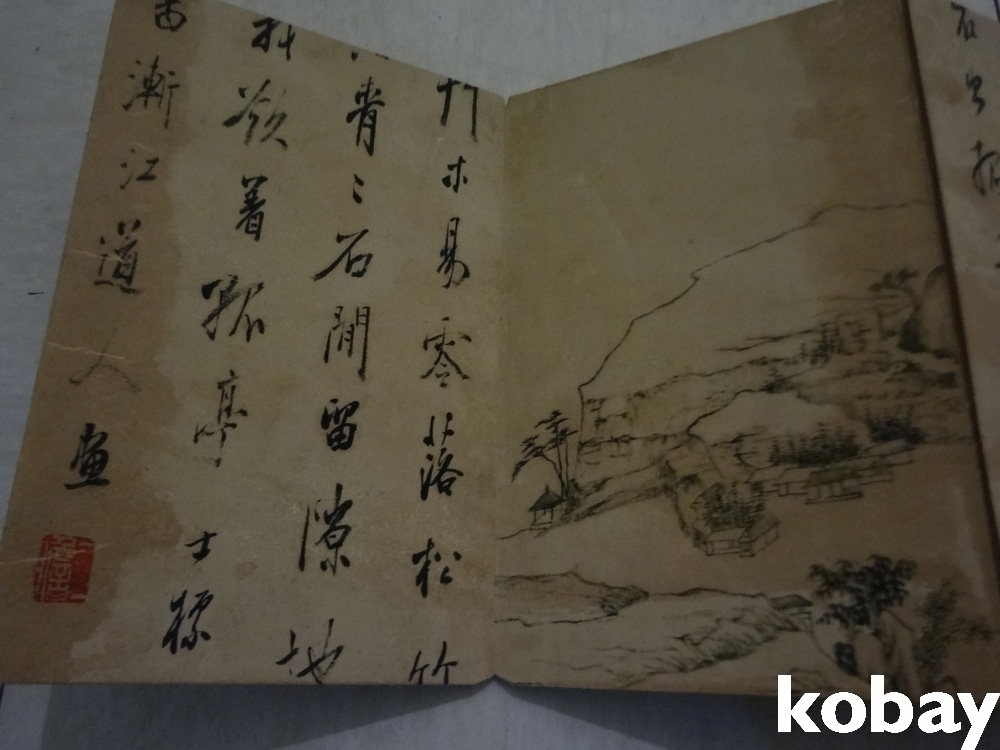 石
木易零落松竹
青々石間留隙地
欲着孤亭 士標
漸江道人畫
kobay